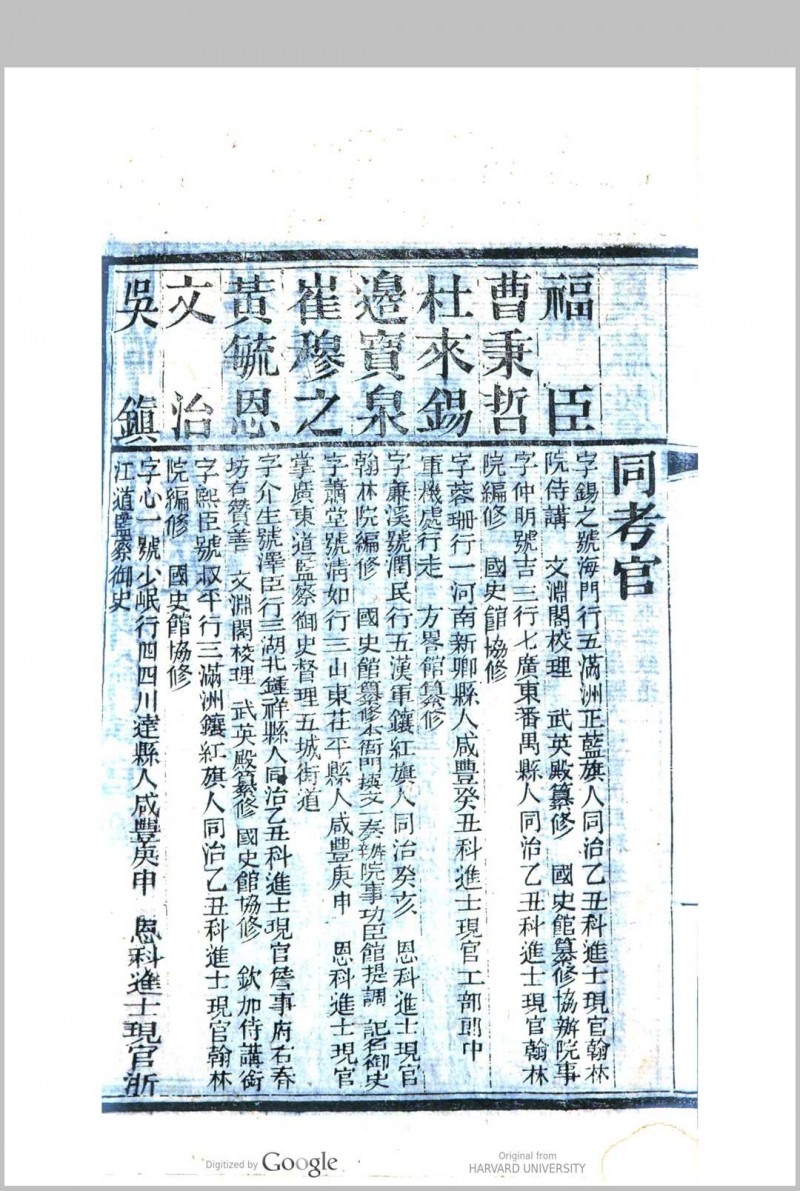 同考官
福臣
字錫之號海門行五滿洲正藍旗人同治乙丑科進士現官翰林
院侍講 文淵閣校理 武英殿纂修 國史館纂修協辦院事
曹秉哲
字仲明號吉三行七廣東番禺縣人同治乙丑科進士現官翰林
院編修 國史館協修
杜來錫
字蓉珊行一河南新鄉縣人咸豐癸丑科進士現官工部郎中
軍機處行走 方畧館纂修
邊寶泉
字廉溪號潤民行五漢軍鑲紅旗人同治癸亥 恩科進士現官
翰林院編修 國史館纂修本衙門撰文奏辦院事功臣館提調 記名御史
崔穆之
字蕭堂號清如行三山東茌平縣人咸豐庚申 恩科進士現官
掌廣東道監察御史督理五城街道
黃毓恩
字介生號澤臣行三湖北鍾祥縣人同治乙丑科進士現官詹事府右春
坊右贊善 文淵閣校理 武英殿纂修 國史館協修 欽加侍講銜
文治
字熙臣號叔平行三滿洲鑲紅旗人同治乙丑科進士現官翰林
院編修 國史館協修
吳鎮
字心一號少岷行四四川達縣人咸豐庚申 恩科進士現官浙
江道監察御史
Digitized by Google
Original from
HARVARD UNIVERSITY